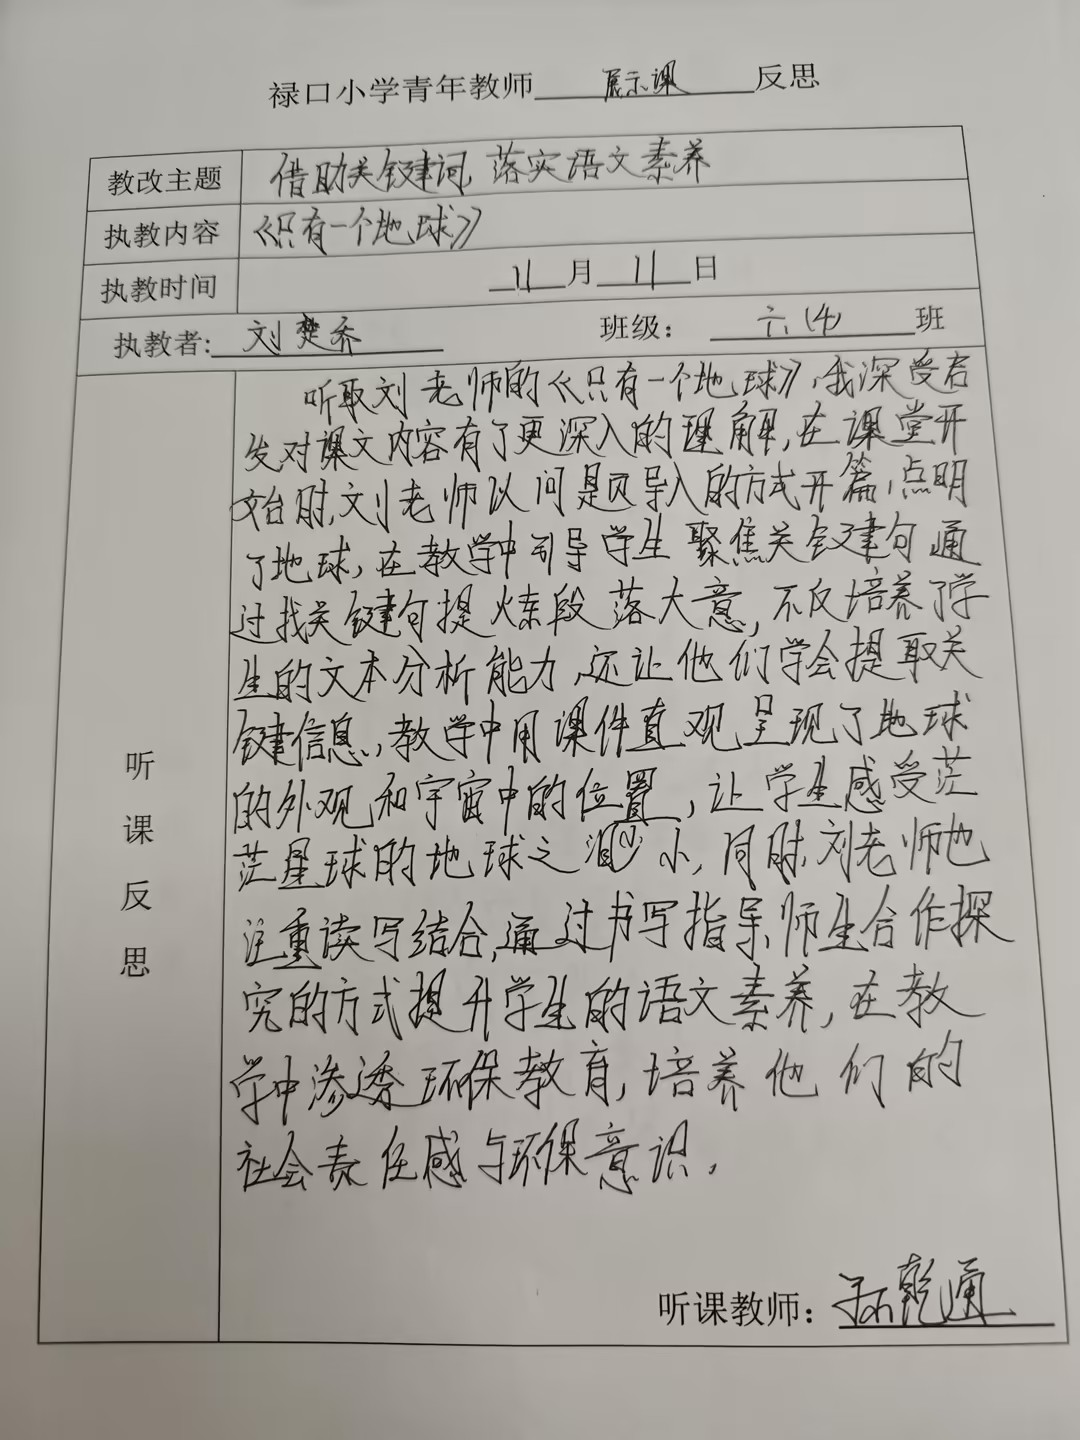 禄口小学青年教师 展示课 反思
教改主题 借助关键词,落实语文素养
执教内容 《只有一个地球》
执教时间 11月11日
执教者:刘楚乔 班级: 六(4)班
听课反思
听取刘老师的《只有一个地球》,我深受启
发对课文内容有了更深入的理解,在课堂开
始时,刘老师以问题导入的方式开篇,点明
了地球,在教学中引导学生聚焦关键句通
过找关键句提炼段落大意,不仅培养了学
生的文本分析能力,还让他们学会提取关
键信息,教学中用课件直观呈现了地球
的外观和宇宙中的位置,让学生感受茫
茫星球的地球之渺小,同时,刘老师也
注重读写结合,通过书写指导,师生合作探
究的方式提升学生的语文素养,在教
学中渗透环保教育,培养他们的
社会责任感与环保意识.
听课教师:孙乾通